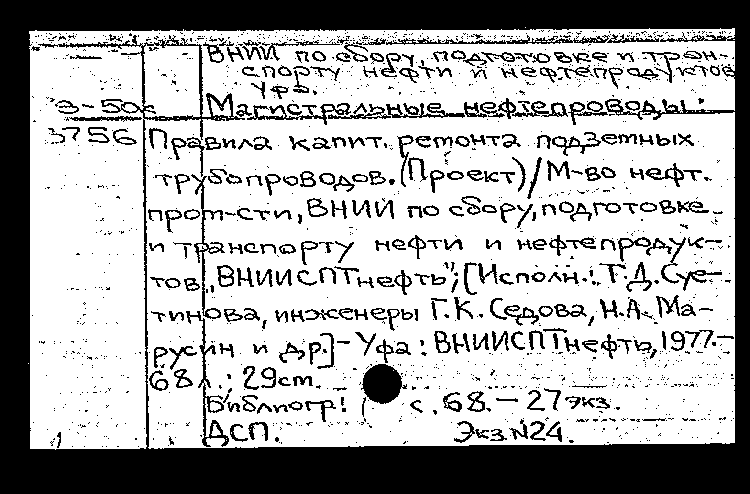 ВНИИ по сбору, подготовке и тран-
спорту нефти и нефтепродуктов
Уфа.
З-50с Магистральные нефтепроводы:
3756 Правила капит. ремонта подземных
трубопроводов. (Проект)/М-во нефт.
пром-сти, ВНИИ по сбору, подготовке
и транспорту нефти и нефтепродук-
тов „ВНИИСПТнефть"; [Исполн.: Т.Д. Суе-
тинова, инженеры Г.К. Седова, Н.А. Ма-
русин и др.] - Уфа: ВНИИСПТнефть, 1977.-
68 л.; 29см.
Библиогр! с. 68. - 27 экз.
ДСП. Экз N24.